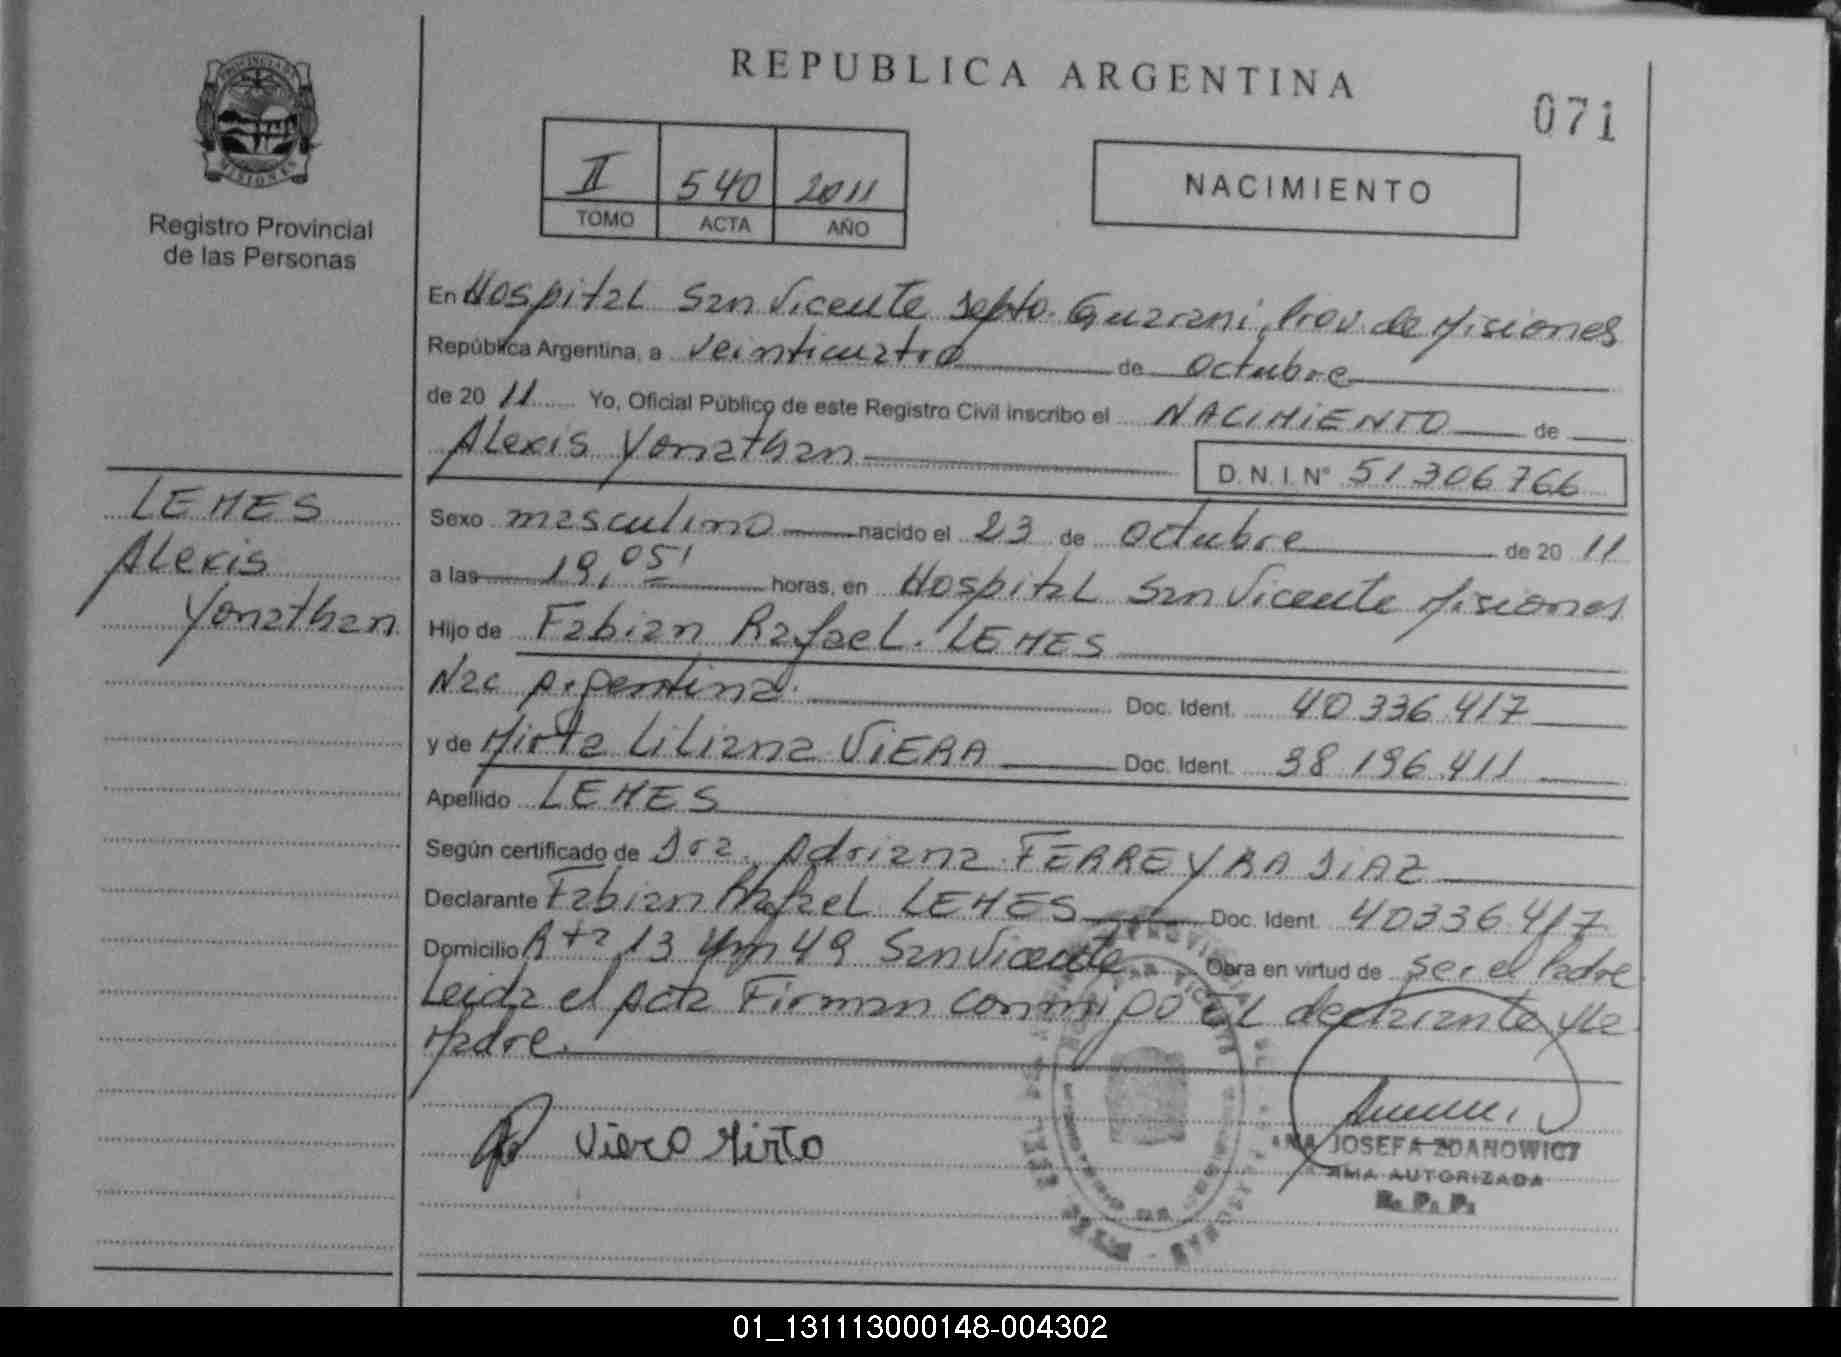 REPUBLICA ARGENTINA
071
PROVINCIA DE
MISIONES
Registro Provincial
de las Personas
II 540 2011
TOMO ACTA AÑO
NACIMIENTO
En Hospital San Vicente Depto. Guarani, Prov. de Misiones
República Argentina, a veinticuatro de octubre
de 20 11 Yo, Oficial Público de este Registro Civil inscribo el NACIMIENTO de
Alexis Yonathan
D. N. I. Nº 51306766
LEMES
Alexis
Yonathan
Sexo masculino nacido el 23 de octubre de 20 11
a las 19,05' horas, en Hospital San Vicente Misiones
Hijo de Fabian Rafael. LEMES
Nac Argentina. Doc. Ident. 40 336 417
y de Mirta Liliana VIERA Doc. Ident. 38 196 411
Apellido LEMES
Según certificado de Dra. Adriana FERREYRA DIAZ
Declarante Fabian Rafael LEMES Doc. Ident. 40336417
Domicilio Rta 13 Km 49 San Vicente Obra en virtud de ser el Padre
Leida el Acta Firman conmigo EL declarante y la
Madre.
Viera Mirta
ANA JOSEFA ZDANOWICZ
FIRMA AUTORIZADA
R. P. P.
01_131113000148-004302